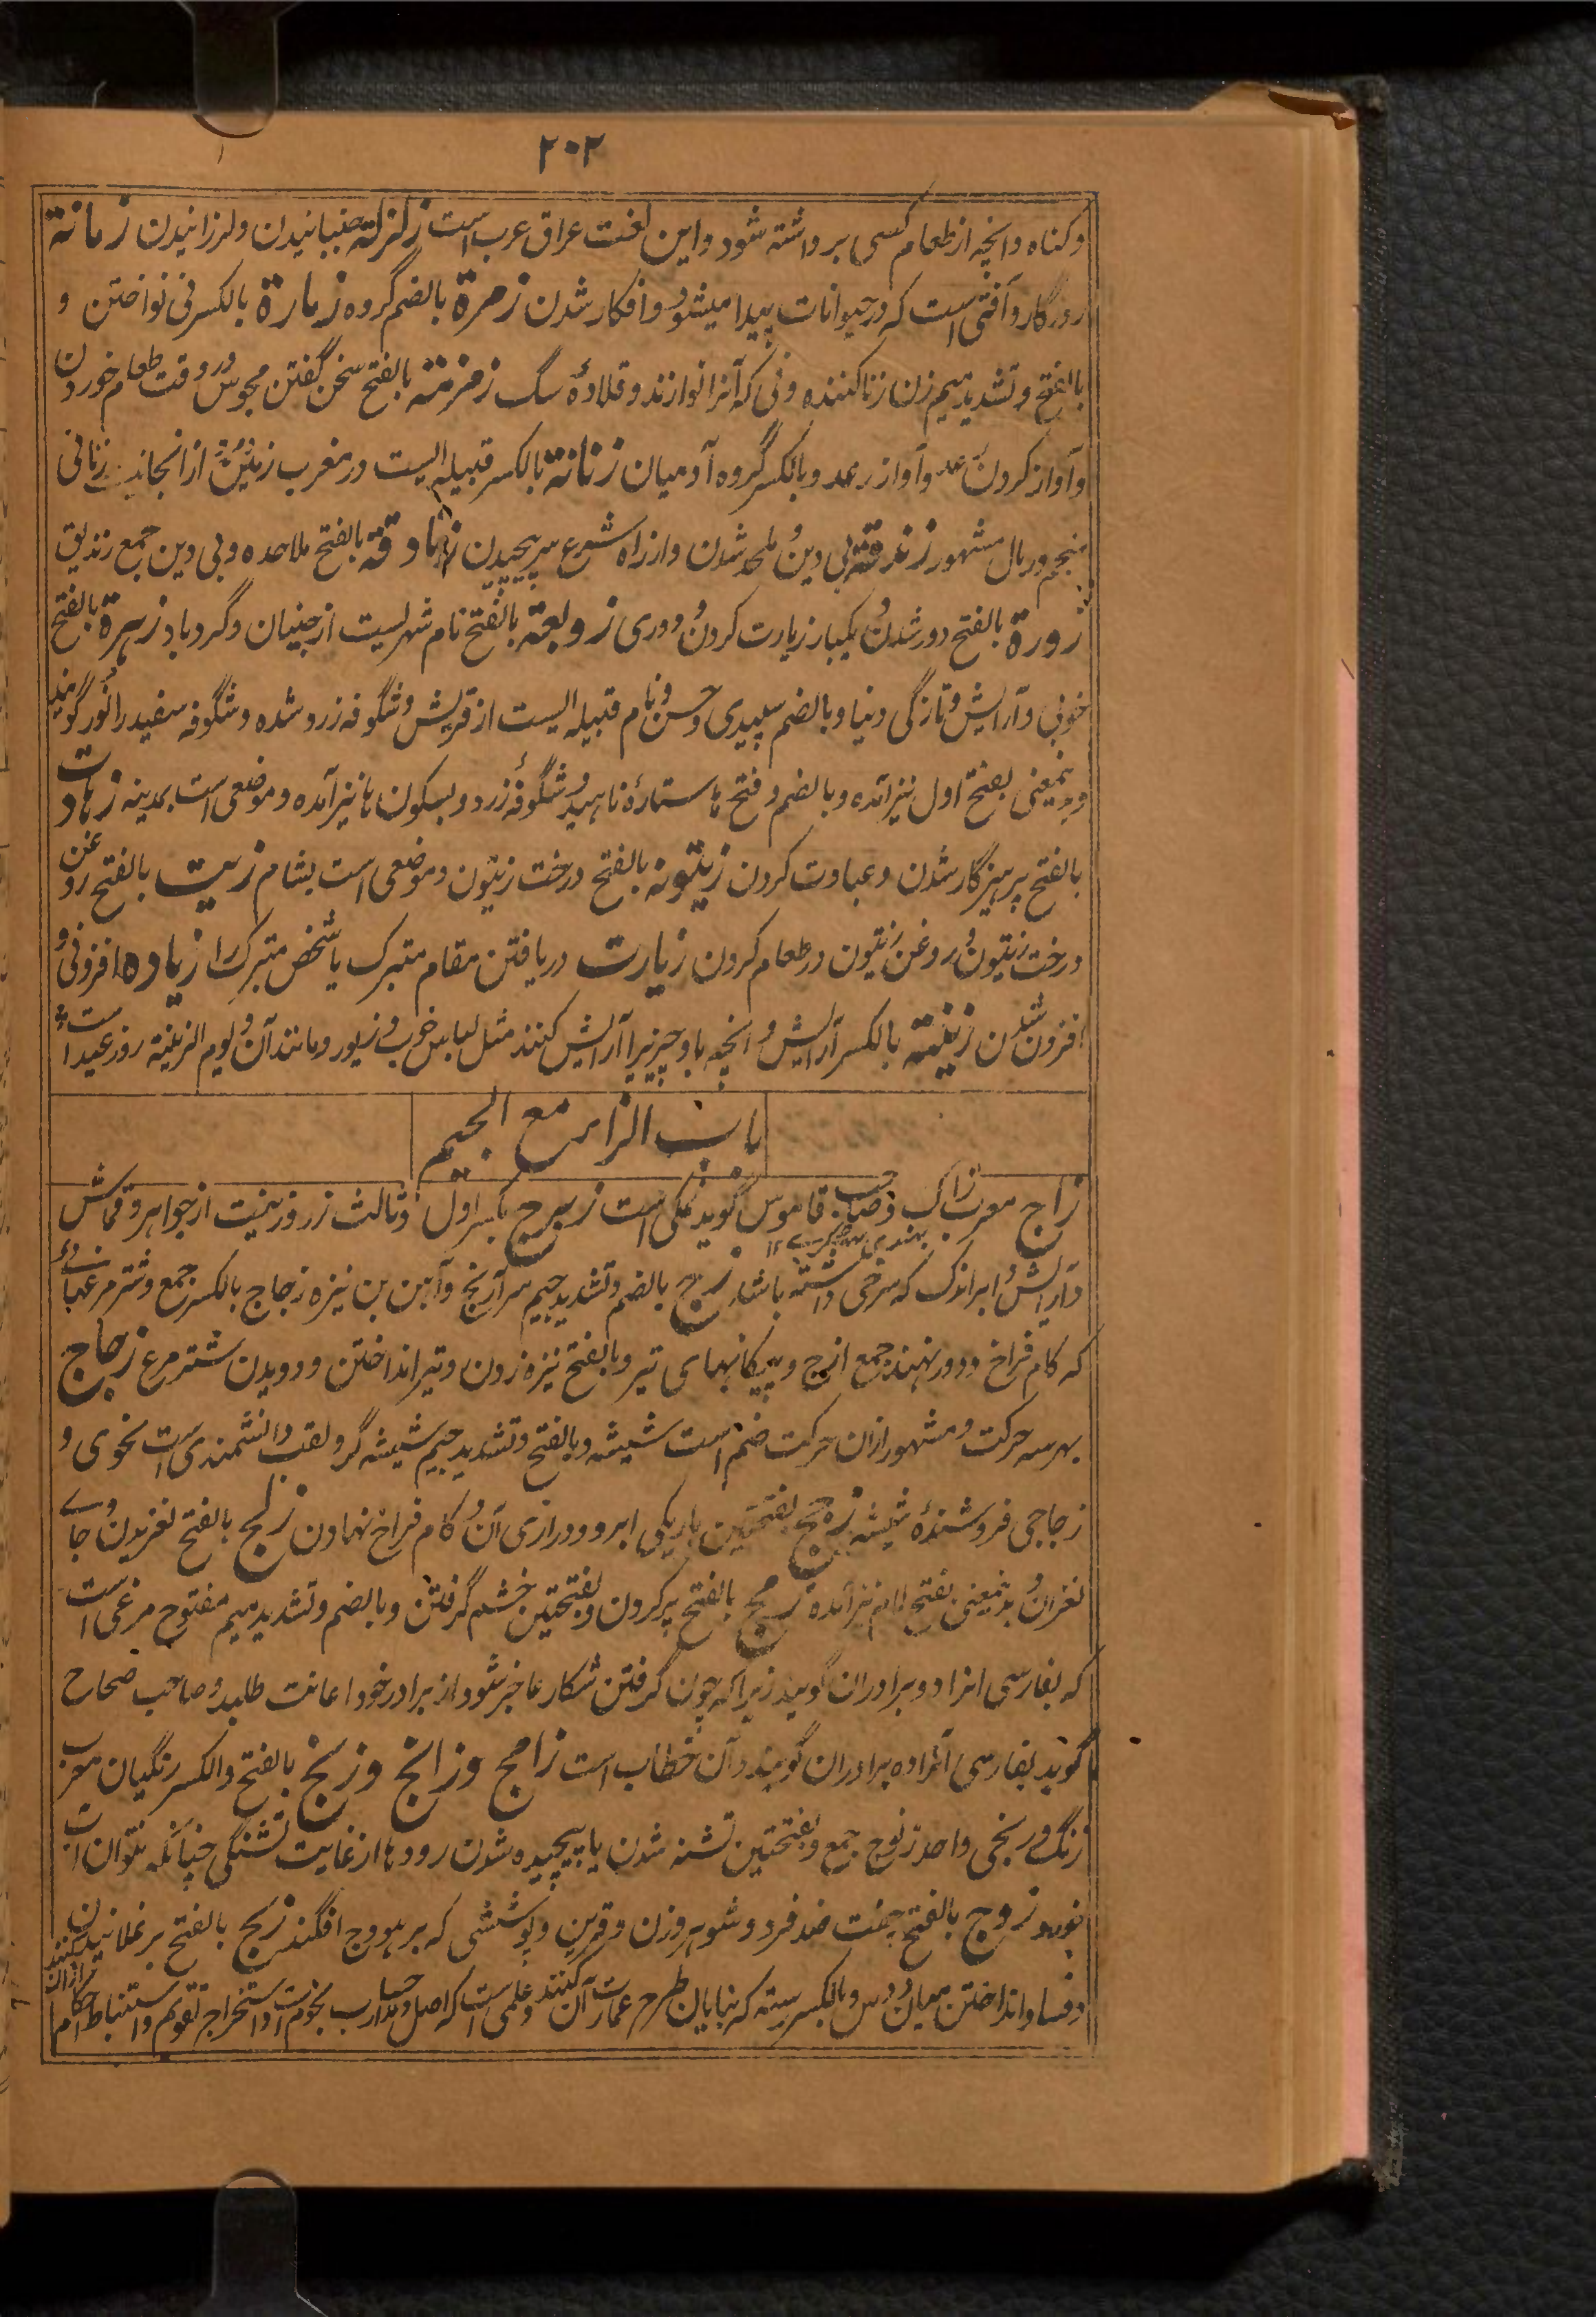 ۲۰۲
وکناه وانچه از طعام کسی برداشته شود و این لغت عراق عرب است زلزلة جنبانیدن ولرزانیدن زمانة
روزگار و آفتی است که در حیوانات پیدا میشود و افکار شدن زمرة بالضم گروه زمارة بالکسر نی نواختن و
بالفتح و تشدید میم زن زنا کننده و نی که آنرا نوازند و قلادهٔ سگ زمزمة بالفتح سخن گفتن مجوس در وقت طعام خوردن
و آواز کردن رعد و آواز رعد و بالکسر گروه آدمیان زنانة بالکسر قبیله ایست در مغرب زمین از انجاست زناتی
منجم و رمال مشهور زندقة بی دین و ملحد شدن و از راه شرع سرپیچیدن زنادقة بالفتح ملاحده و بی دین جمع زندیق
زورة بالفتح دور شدن و یکبار زیارت کردن و دوری زوبعة بالفتح نام شهریست از جنیان و گردباد زهرة بالفتح
خوبی و آرایش و تازگی دنیا و بالضم سپیدی و حسن و نام قبیله ایست از قریش و شگوفه زرد شده و شگوفه سفید را نَور گویند
و بدینمعنی بفتح اول نیز آمده و بالضم و فتح ها ستارهٔ ناهید و شگوفهٔ زرد و بسکون ها نیز آمده و موضعی است بمدینه زهادت
بالفتح پرهیزگار شدن و عبادت کردن زیتونه بالفتح درخت زیتون و موضعی است بشام زیت بالفتح روغن
درخت زیتون و روغن زیتون در طعام کردن زیارت دریافتن مقام متبرک یا شخص متبرک را زیاده افزونی و
افزون شدن زینة بالکسر آرایش و انچه باو چیزیرا آرایش کنند مثل لباس خوب و زیور و مانند آن و یوم الزینة روز عید است
باب الزاء مع الجیم
زاج معرب زاک و صاحب قاموس گوید نمکی است زبرج بکسر اول و ثالث زر و زینت از جواهر و قماش
و آرایش و ابر اندک که سرخی داشته باشد زج بالضم و تشدید جیم سر آرنج و آهن بن نیزه زجاج بالکسر جمع و شتر مرغهائے
که کام فراخ و دور نهند جمع ازج و پیکانهای تیر و بالفتح نیزه زدن و تیر انداختن و دویدن شتر مرغ زجاج
بهر سه حرکت و مشهور ازان حرکت ضم است شیشه و بالفتح و تشدید جیم شیشه گر و لقب دانشمندی است نحوی و
زجاجی فروشندهٔ شیشه زجج بفتحتین باریکی ابرو و درازی آن و کام فراخ نهادن زلج بالفتح لغزیدن و جاے
لغزان و بدینمعنی بفتح لام نیز آمده زمج بالفتح پر کردن و بفتحتین خشم گرفتن و بالضم و تشدید میم مفتوح مرغی است
که بفارسی انرا دو برادران گویند زیرا که چون گرفتن شکار عاجز شود از برادر خود اعانت طلبد و صاحب صحاح
گوید بفارسی آنرا ده برادران گویند و آن خطاب است زامج و زانج و زنج بالفتح و الکسر زنگیان معرب
زنگ و زنجی واحد زنوج جمع و بفتحتین تشنه شدن یا پیچیده شدن رودها از غایت تشنگی چنانکه نتوان آب
نوید زوج بالفتح جفت ضد فرد و شوهر و زن و قرین و پوششی که بر هودج افگنند زنج بالفتح برغلانیدن
و فساد انداختن میان دو کس و بالکسر رسته که بنایان طرح عمارت آن کنند و علمی است که اصل و مدار حساب نجوم است و استخراج تقویم و استنباط احکام ازان کنند